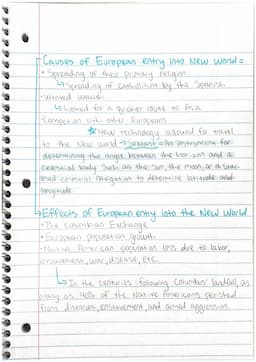 Causes of European entry into New World =
• Spreading of their primary religion
↳ Spreading of Catholicism by the Spanish
• Wanted wealth
↳ Looked for a quicker route to Asia
• Competition with other Europeans
★ New technology allowed for travel
to the New World → Sextant = An instrument for
determining the angle between the horizon and a
celestial body such as the sun, the moon, or a star,
used celestial navigation to determine latitude and
longitude.
Effects of European entry into the New World
• The Columbian Exchange
• European population growth
• Native American population loss due to labor,
enslavement, war, disease, etc.
↳ In the centuries following Columbus' landfall, as
many as 90% of the Native Americans perished
from diseases, enslavement, and armed aggression.